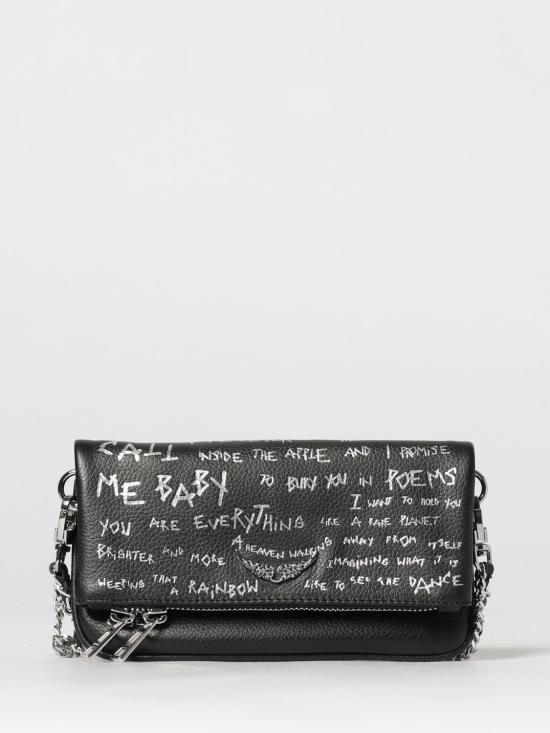 CALL INSIDE THE APPLE AND I PROMISE
ME BABY TO BURY YOU IN POEMS
I WANT TO HOLD YOU
YOU ARE EVERYTHING LIKE A RARE PLANET
A HEAVEN WALKING AWAY FROM ITSELF
BRIGHTER AND MORE IMAGINING WHAT IT IS
WEEPING THAT A RAINBOW LIKE TO SEE THE DANCE